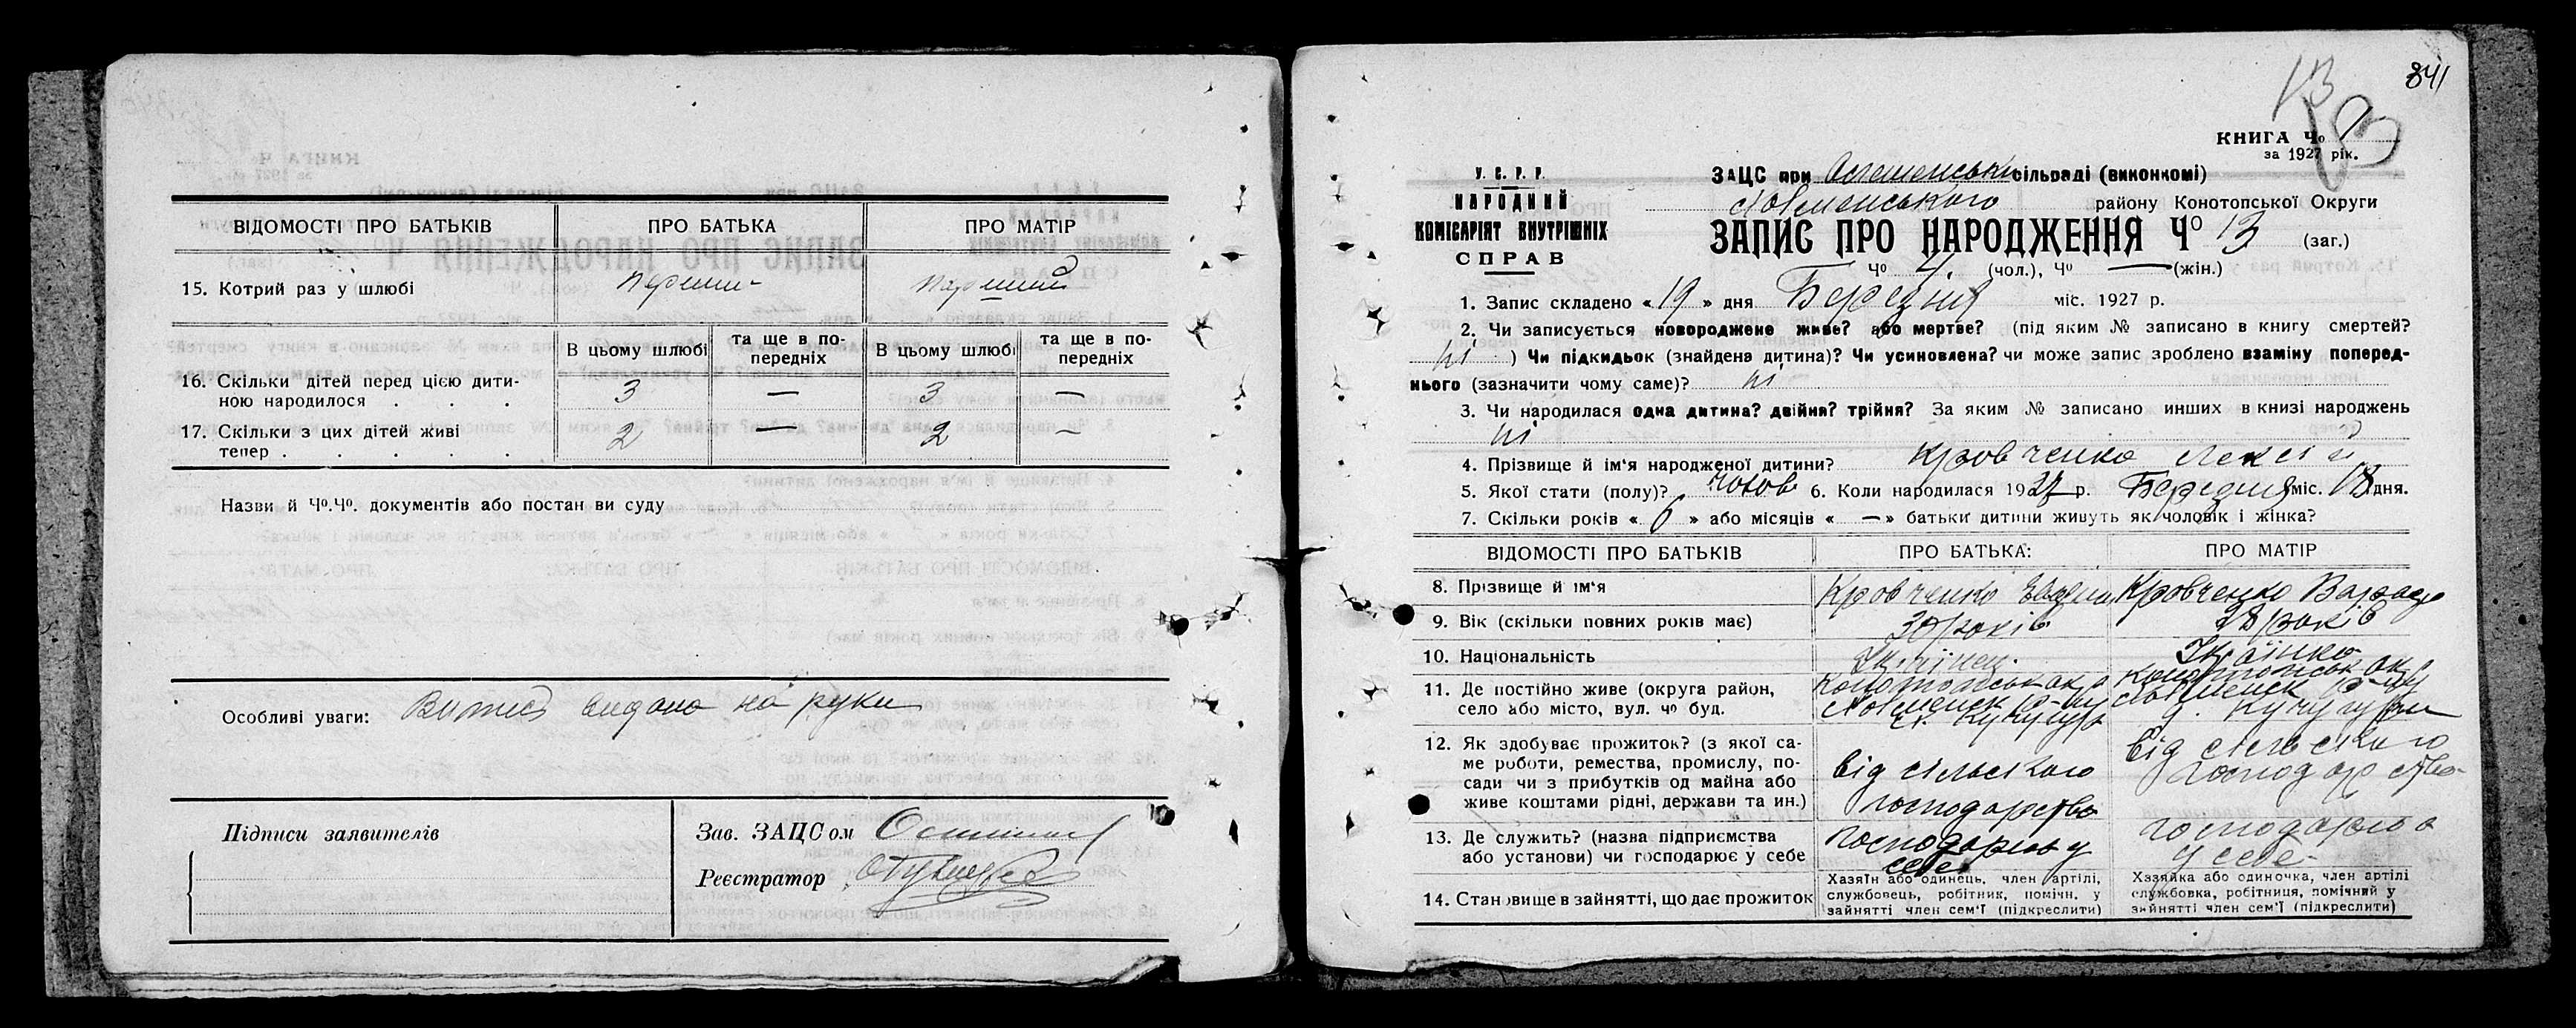 ВІДОМОСТІ ПРО БАТЬКІВ ПРО БАТЬКА ПРО МАТІР
15. Котрий раз у шлюбі перший
В цьому шлюбі та ще в по-передніх В цьому шлюбі та ще в по-передніх
16. Скільки дітей перед цією дити-
ною народилося . . . 3 — 3 —
17. Скільки з цих дітей живі
тепер . . . . . 2 — 2 —
Назви й Чо.Чо. документів або постан ви суду
Особливі уваги: видано на руки
Підписи заявителів
Зав. ЗАЦСом
Реєстратор
841
13
13
КНИГА Чо 1
за 1927 рік.
У. С. Р. Р.
НАРОДНИЙ
КОМІСАРІЯТ ВНУТРІШНІХ
СПРАВ
ЗАЦС при сільраді (виконкомі)
району Конотопської Округи
ЗАПИС ПРО НАРОДЖЕННЯ Чо 13 (заг.)
Чо 4. (чол.), Чо — (жін.)
1. Запис складено « 19 » дня Березня міс. 1927 р.
2. Чи записується новороджене живе? або мертве? (під яким № записано в книгу смертей?
ні ) Чи підкидьок (знайдена дитина)? Чи усиновлена? чи може запис зроблено взаміну поперед-
нього (зазначити чому саме)? ні
3. Чи народилася одна дитина? двійня? трійня? За яким № записано инших в книзі народжень
ні
4. Прізвище й ім'я народженої дитини? Кровченко Лексій
5. Якої статі (полу)? чолов 6. Коли народилася 1927 р. Березня міс. 18 дня.
7. Скільки років « 6 » або місяців « — » батьки дитини живуть як чоловік і жінка?
ВІДОМОСТІ ПРО БАТЬКІВ ПРО БАТЬКА: ПРО МАТІР
8. Прізвище й ім'я Кровченко Кровченко
9. Вік (скільки повних років має) 30 років 28 років
10. Національність Українка
11. Де постійно живе (округа район,
село або місто, вул. чо буд.
12. Як здобуває прожиток? (з якої са-
ме роботи, ремества, промислу, по-
сади чи з прибутків од майна або
живе коштами рідні, держави та ин.)
від сільського
господарства
від сільського
господарства
13. Де служить? (назва підприємства
або установи) чи господарює у себе
господарює у
себе
господарює
у себе
14. Становище в зайнятті, що дає прожиток
Хазяїн або одинець, член артілі,
службовець, робітник, помічн. у
зайнятті член сем'ї (підкреслити)
Хазяйка або одиночка, член артілі
службовка, робітниця, помічний у
зайнятті член сем'ї (підкреслити)